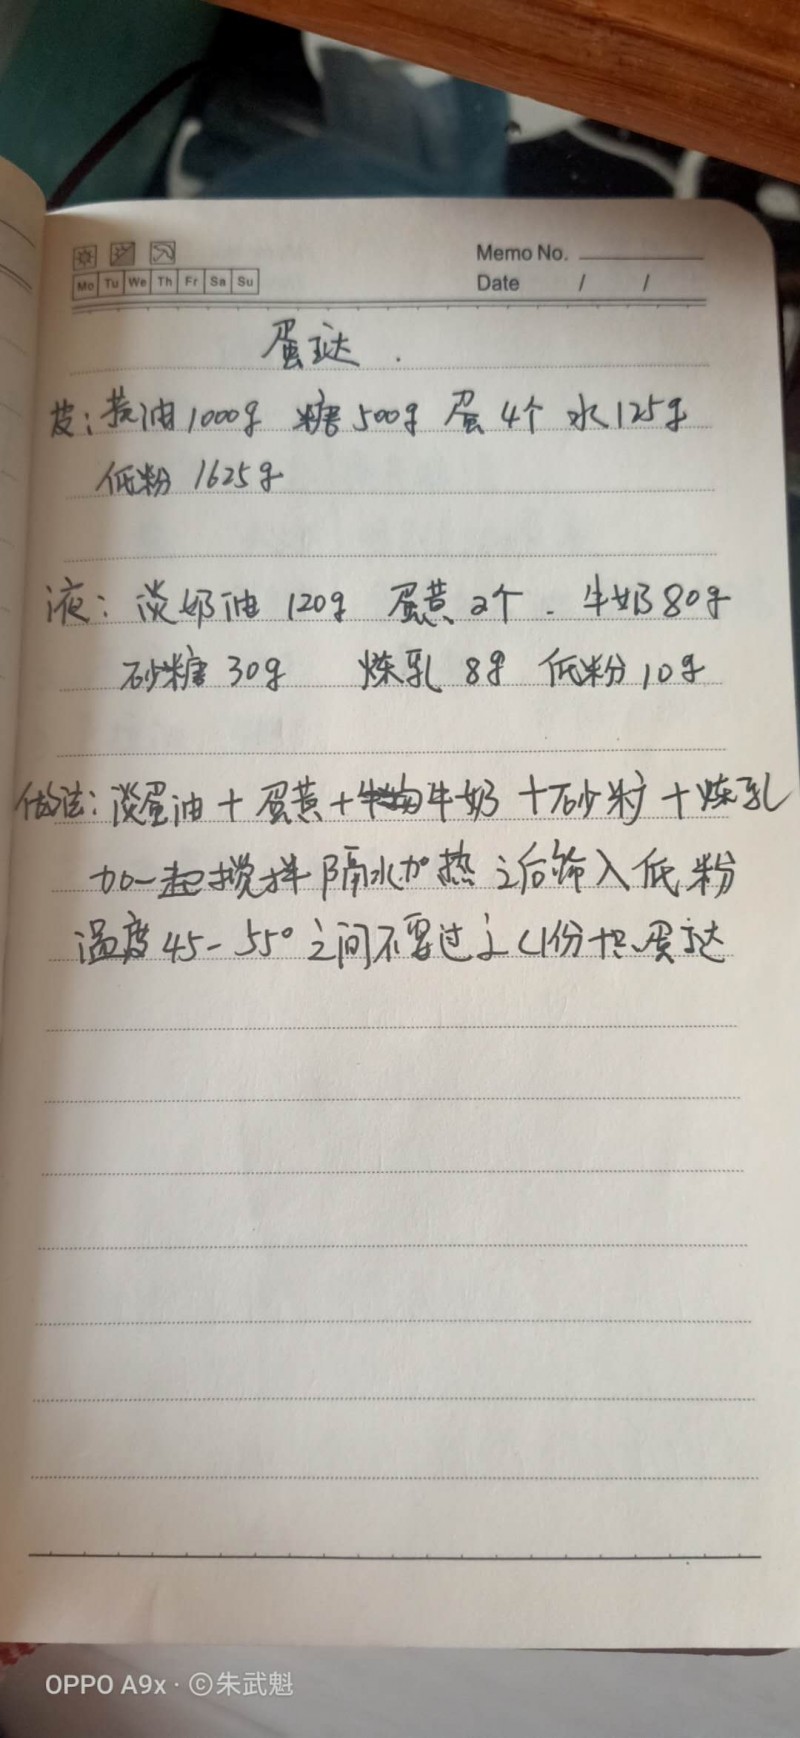 Memo No.
Mo Tu We Th Fr Sa Su
Date / /
蛋挞.
皮: 黄油1000g 糖500g 蛋4个 水125g
低粉 1625g
液: 淡奶油 120g 蛋黄2个. 牛奶80g
砂糖30g 炼乳 8g 低粉10g
做法: 淡蛋油+蛋黄+牛奶+砂+炼乳
加一起搅拌隔水加热之后筛入低粉
温度45-55°之间不要过 1份 蛋挞
OPPO A9x · ©朱武魁